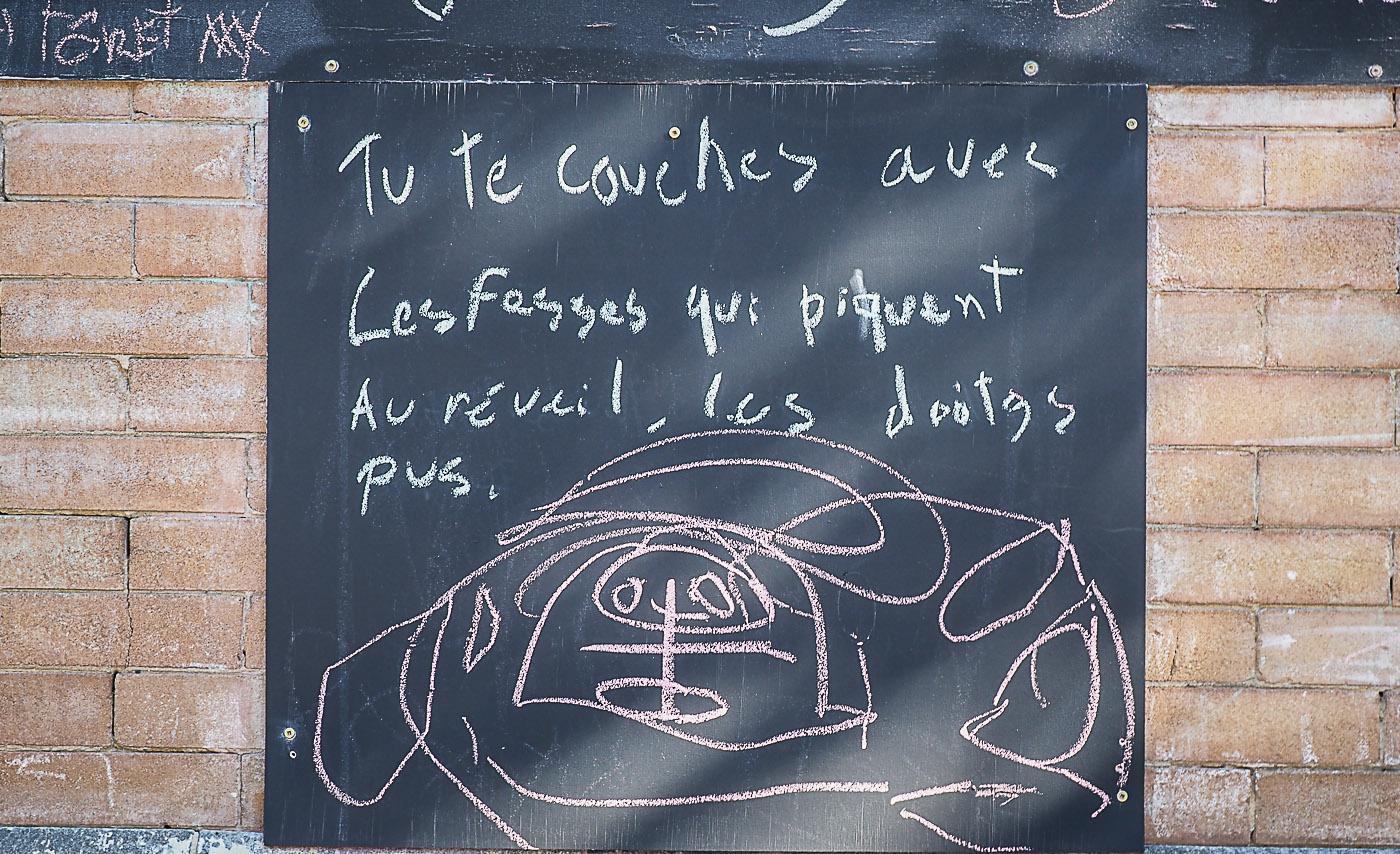 Tu te couches avec
Les fesses qui piquent
Au réveil, les doitgs
pus.